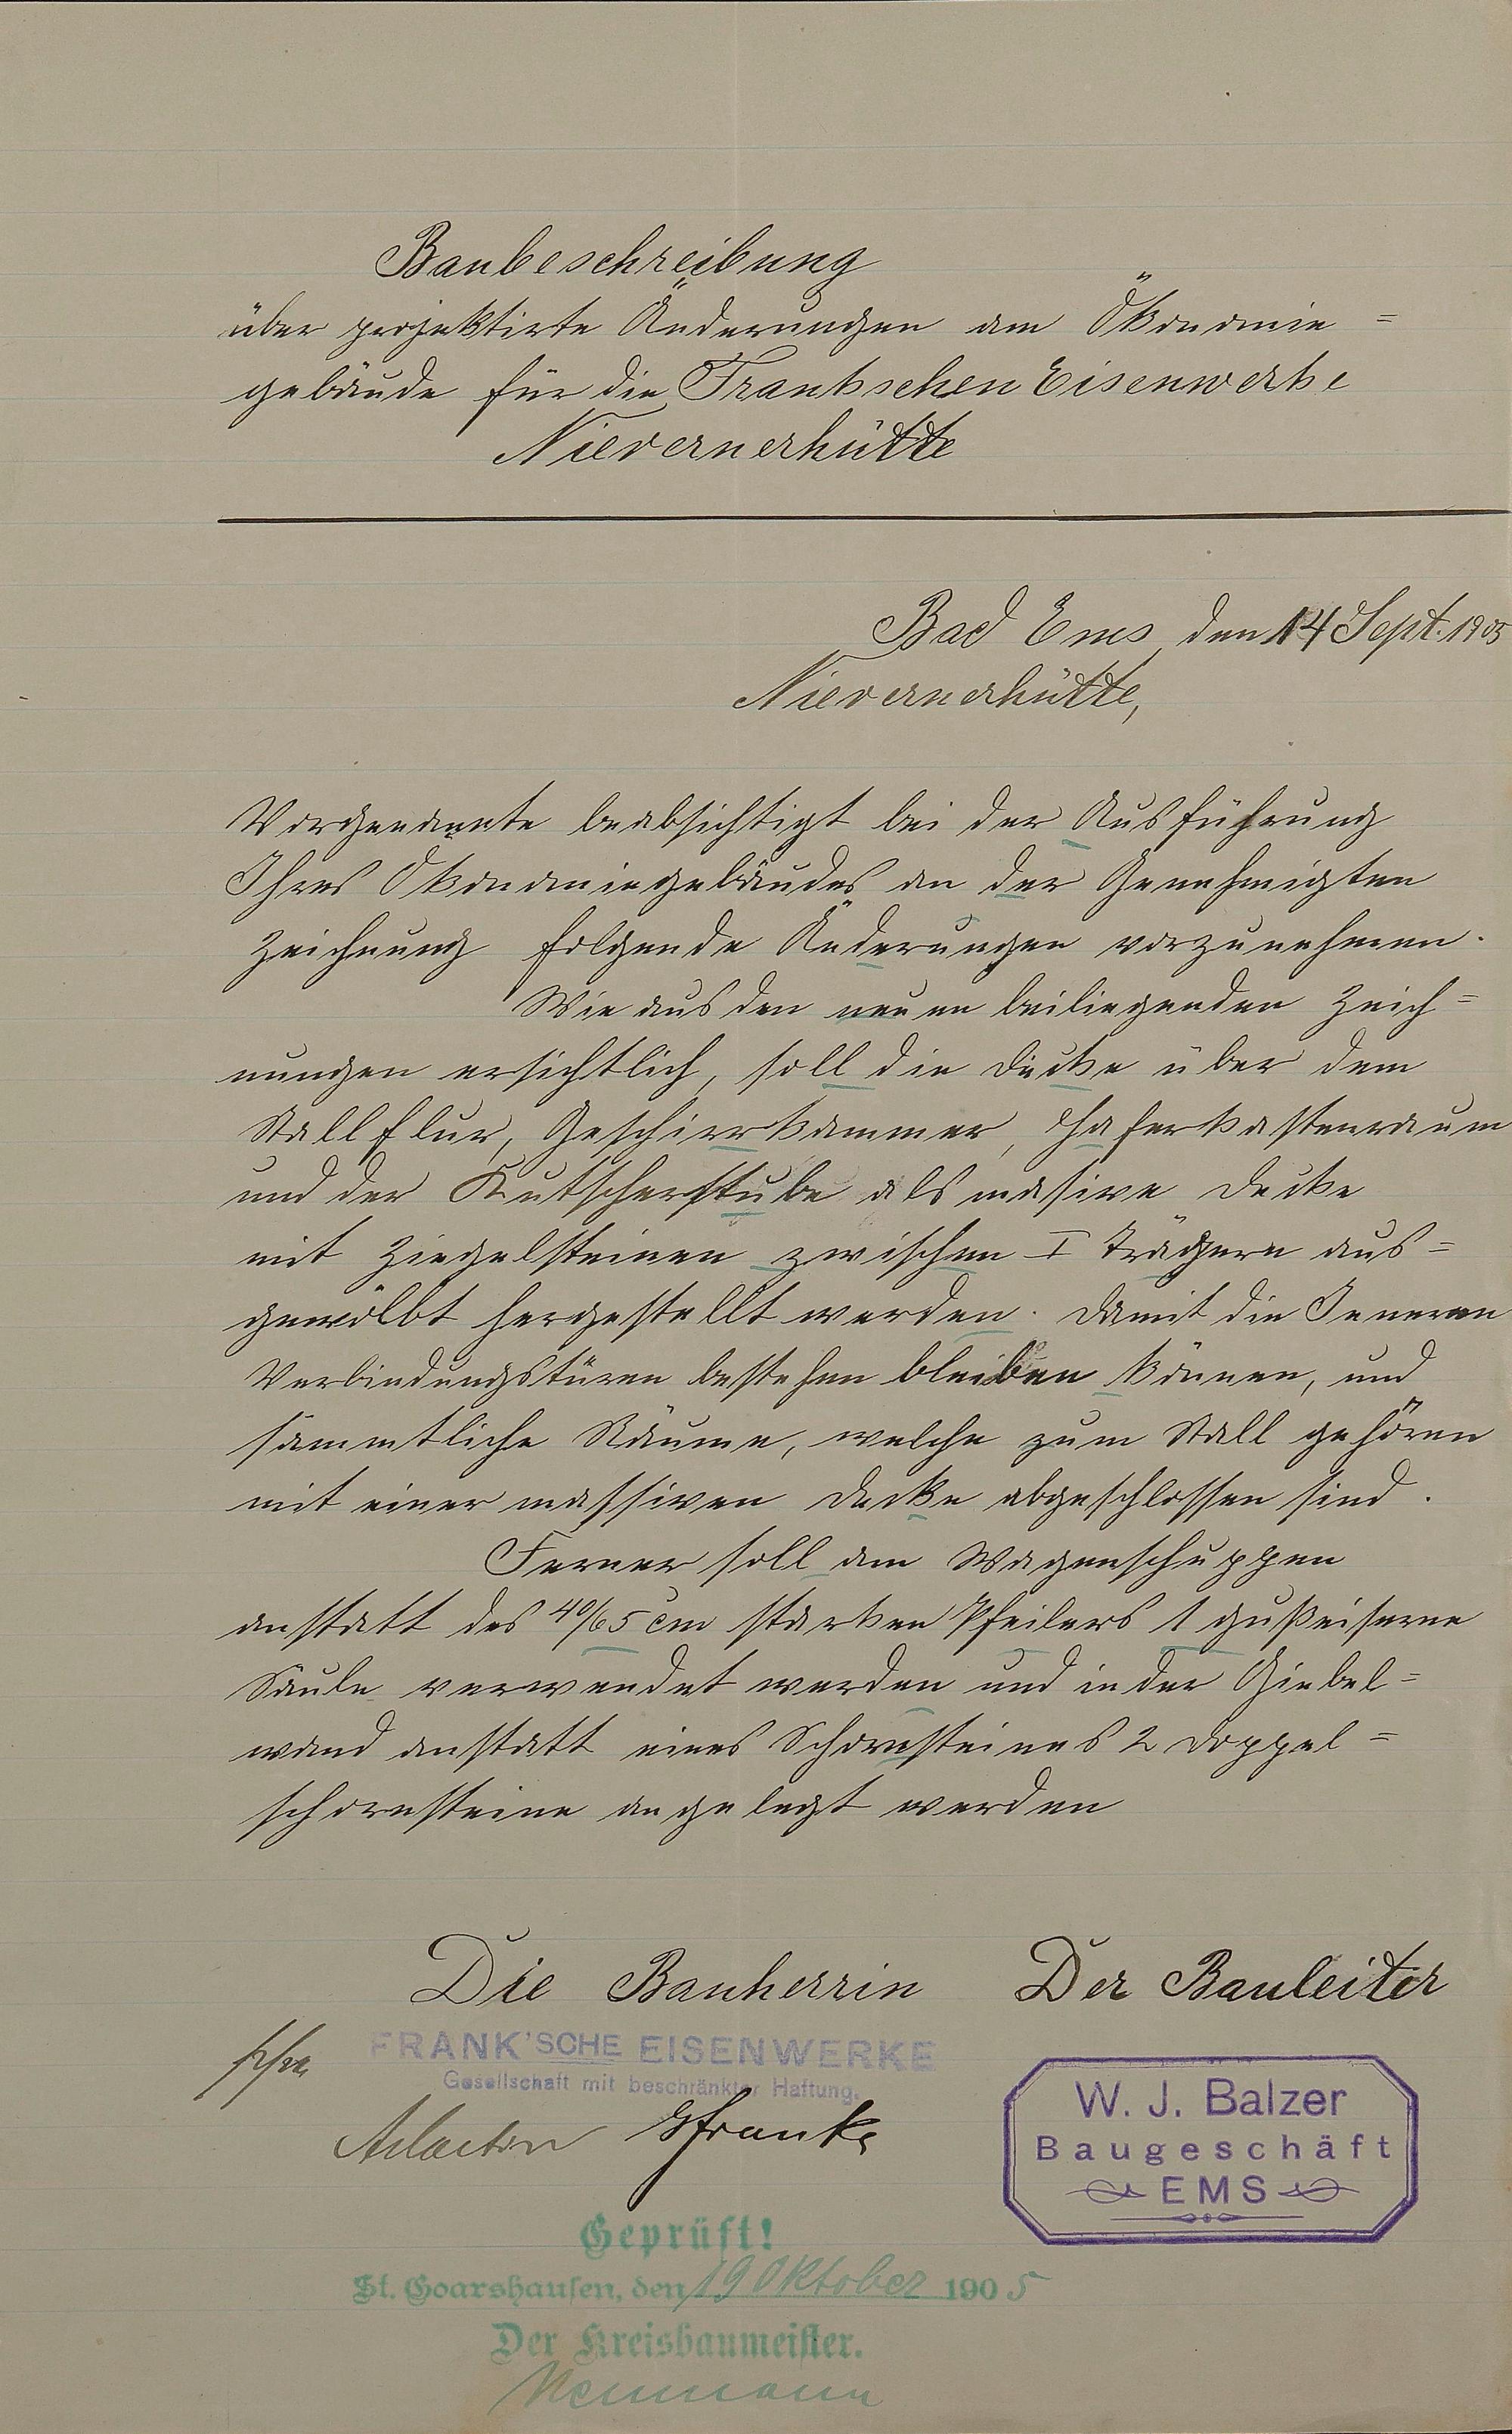 Baubeschreibung
über projektirte Änderungen am Ökonomie=
gebäude für die Frankschen Eisenwerke
Nievernerhütte
Bad Ems, den 14 Sept. 1905
Nievernerhütte,
Vorgenannte beabsichtigt bei der Ausführung
Ihres Ökonomiegebäudes an der Genehmigten
Zeichnung folgende Änderungen vorzunehmen.
Wie aus den neuen beiliegenden Zeich=
nungen ersichtlich, soll die Decke über dem
Stallflur, Geschirrkammer, Haferkastenraum
und der Kutscherstube als masive Decke
mit Ziegelsteinen zwischen I Trägern aus=
gewölbt hergestellt werden. Damit die Inneren
Verbindungstüren bestehen bleiben können, und
sämmtliche Räume, welche zum Stall gehören
mit einer massiven Decke abgeschlossen sind.
Ferner soll am Wagenschuppen
anstatt des 40/65 cm starken Pfeilers 1 gußeiserne
Säule verwendet werden und in der Giebel=
wand anstatt eines Schornsteines 2 Doppel=
schornsteine angelegt werden
Die Bauherrin Der Bauleiter
FRANK'SCHE EISENWERKE
Gesellschaft mit beschränkter Haftung.
W. J. Balzer
Baugeschäft
EMS
Geprüft!
St. Goarshausen, den 19 Oktober 1905
Der Kreisbaumeister.
Neumann